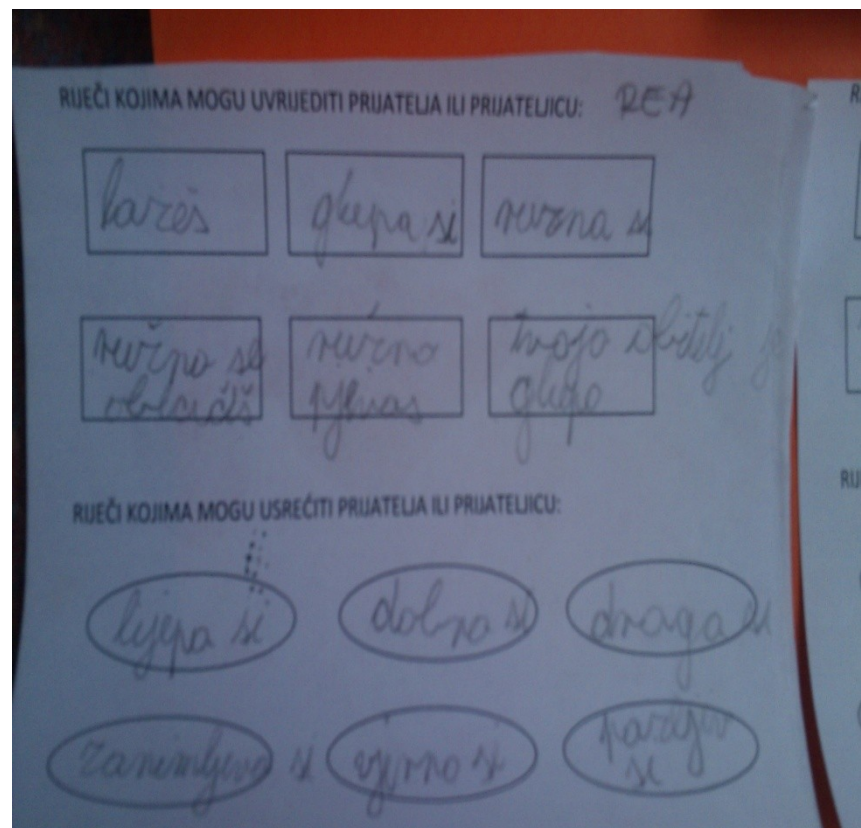 RIJEČI KOJIMA MOGU UVRIJEDITI PRIJATELJA ILI PRIJATELJICU: REA
lažeš glupa si ružna si
ružno se ružno tvoja obitelj je
oblačiš pjevaš glupa
RIJEČI KOJIMA MOGU USREĆITI PRIJATELJA ILI PRIJATELJICU:
lijepa si dobra si draga si
zanimljiva si vjerna si
si